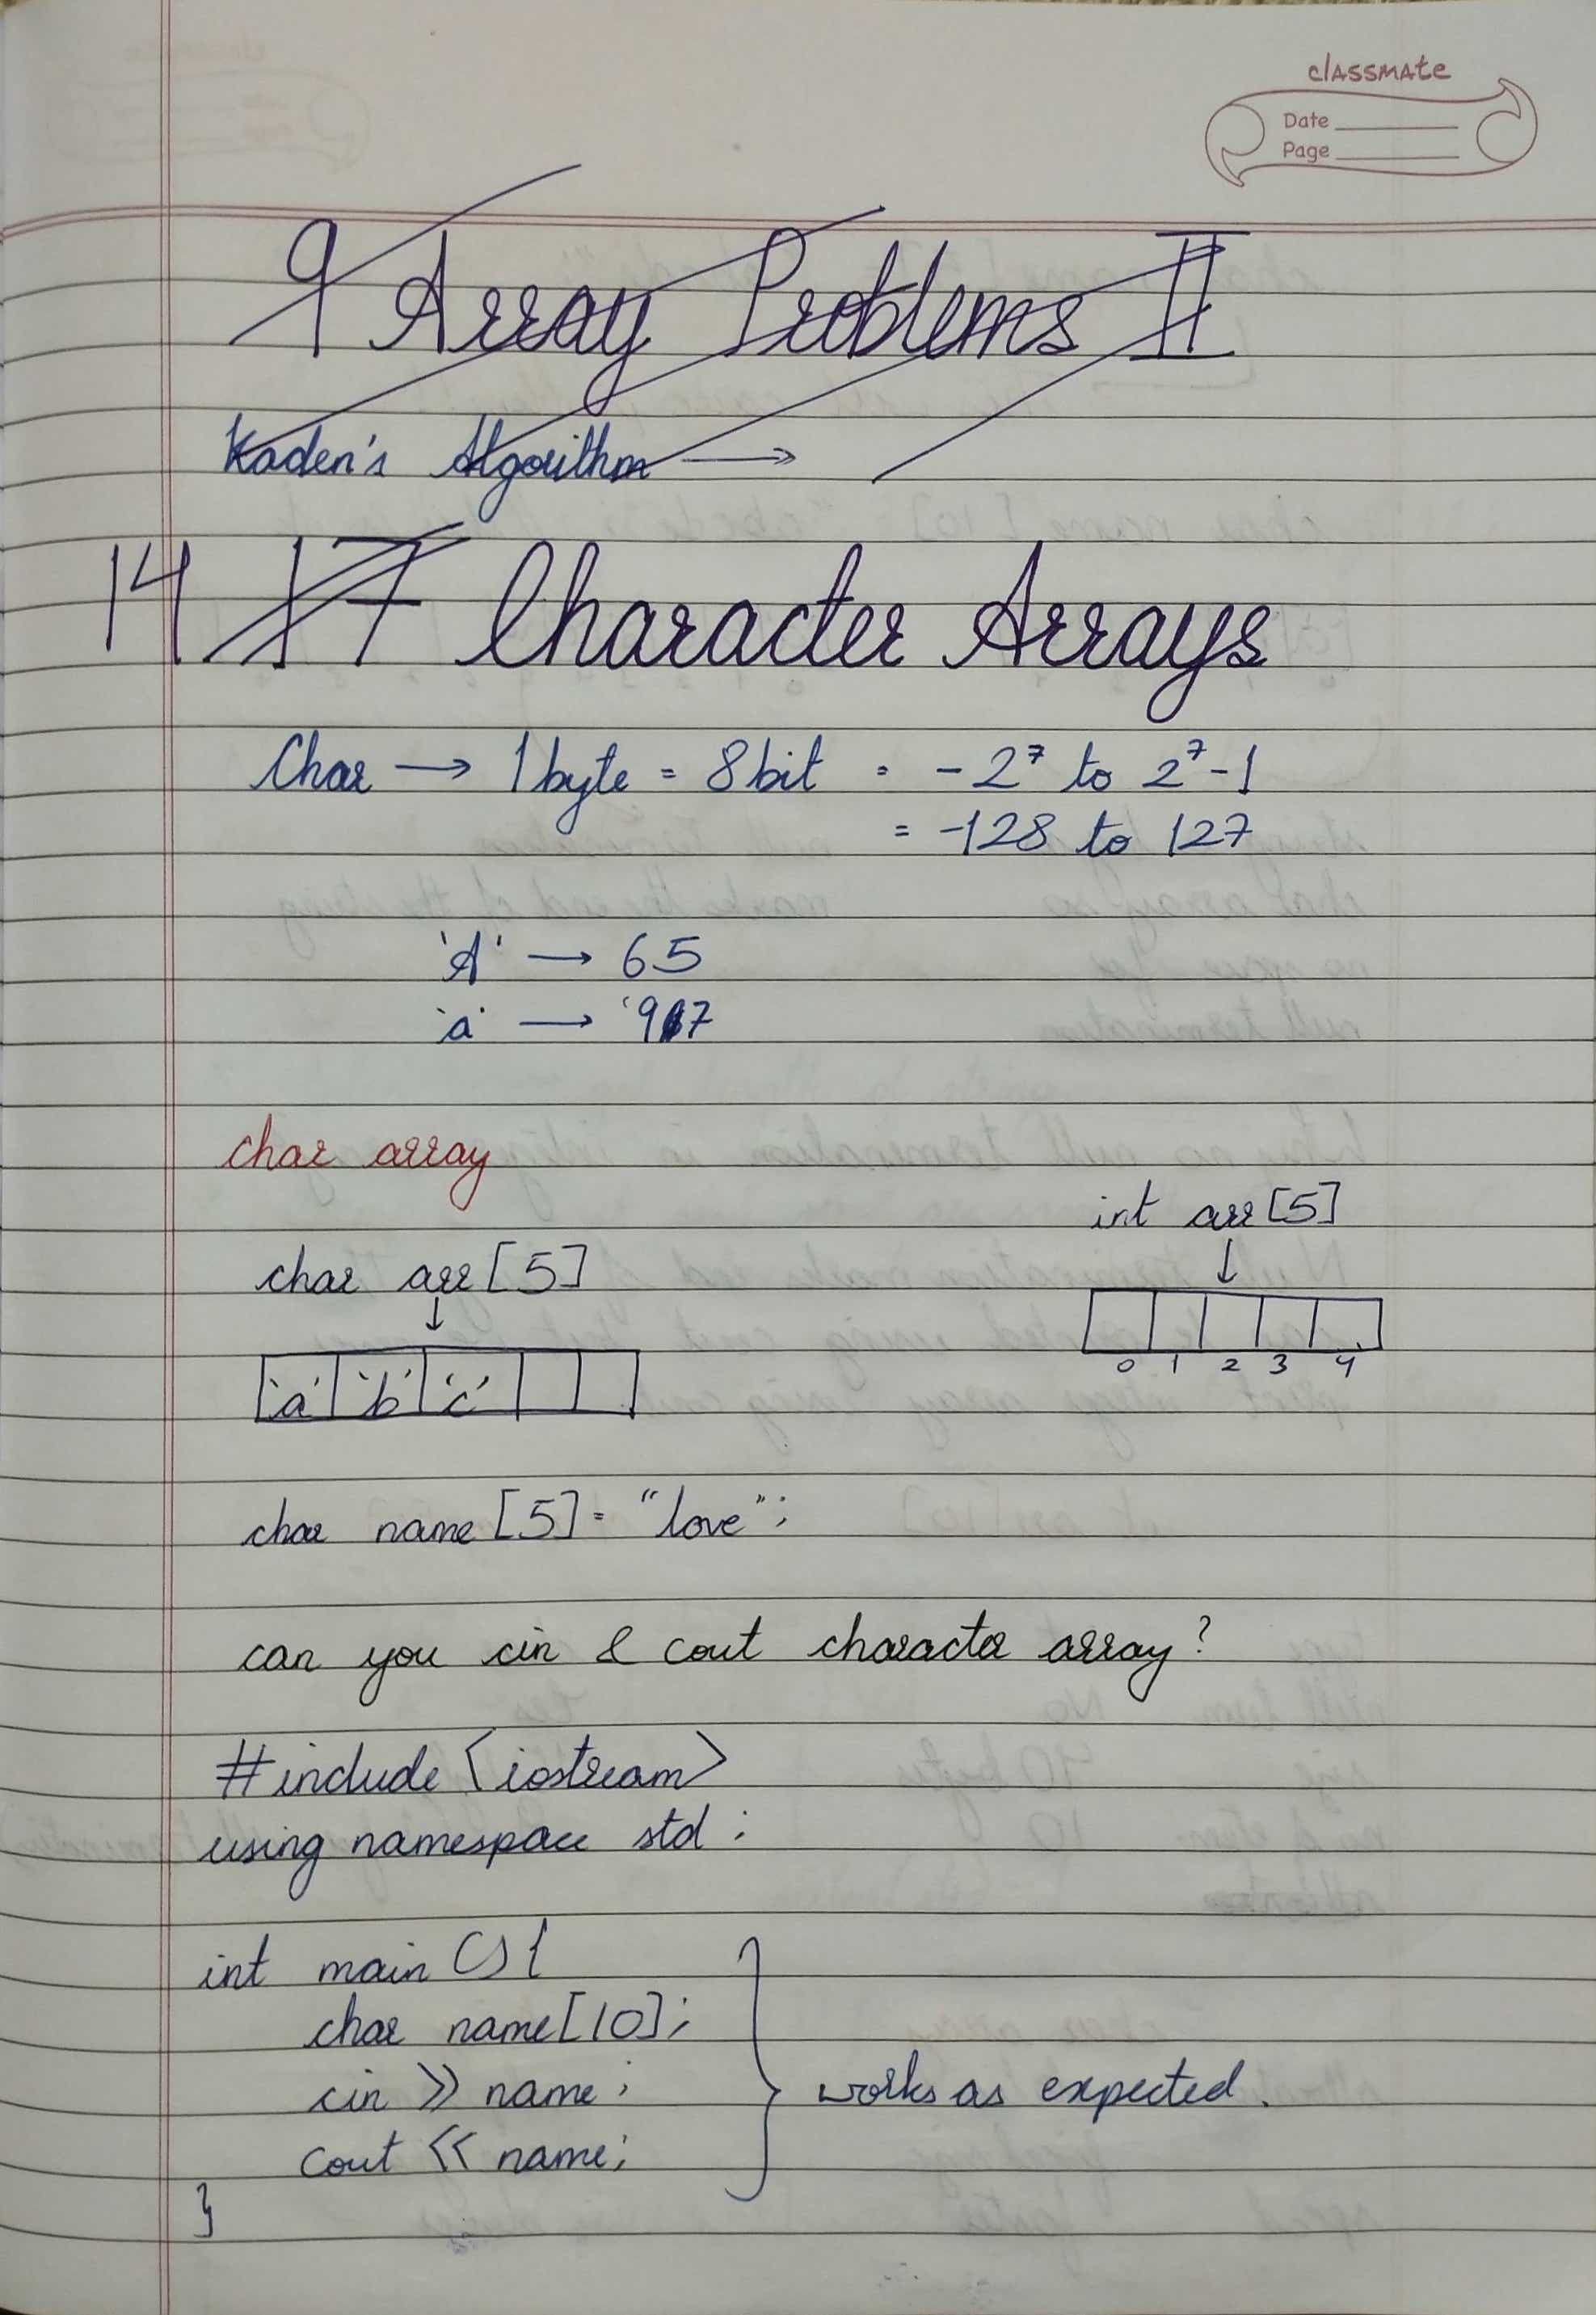 classmate
Date
Page
9 Array Problems II
Kaden's Algorithm →
14 17 Character Arrays
Char → 1 byte = 8 bit = -2⁷ to 2⁷-1
= -128 to 127
'A' → 65
'a' → 97
char array
int arr [5]
char arr [5]
↓
↓
0 1 2 3 4
'a' 'b' 'c'
char name [5] = "love";
can you cin & cout character array?
#include <iostream>
using namespace std ;
int main () {
char name [10];
cin >> name ;
works as expected.
cout << name;
}